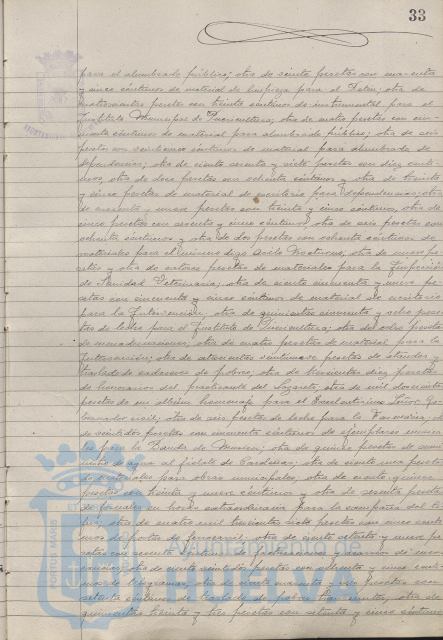 33
para el alumbrado público; otra de siete pesetas con cuarenta
y cinco céntimos de material de limpieza para el Retén; otra de
cuatrocientas pesetas con treinta céntimos de instrumental para el
Instituto Municipal de Puericultura; otra de cuatro pesetas con cin-
cuenta céntimos de material para alumbrado público; otra de seis
pesetas con céntimos de material para alumbrado de
dependencias; otra de ciento setenta y siete pesetas con diez cénti-
mos, otra de doce pesetas con ochenta céntimos y otra de treinta
y cinco pesetas de material de escritorio para dependencias; otra
de cuarenta y nueve pesetas con treinta y cinco céntimos, otra de
cinco pesetas con sesenta y cinco céntimos, otra de seis pesetas con
ochenta céntimos y otra de dos pesetas con ochenta céntimos de
materiales para el mismo digo Asilo Nocturno, otra de nueve pe-
setas y otra de catorce pesetas de materiales para la Inspección
de Sanidad Veterinaria; otra de ciento cincuenta y nueve pe-
setas con cincuenta y cinco céntimos de material de escritorio
para la Intervención; otra de quinientas cincuenta y ocho pese-
tas de leche para el Instituto de Puericultura; otra de ocho pesetas
de encuadernaciones, otra de cuatro pesetas de material para la
Intervención; otra de veintinueve pesetas de ataudes y
traslado de cadáveres de pobres; otra de trescientas diez pesetas
de honorarios del practicante del Lazareto, otra de mil doscientas
pesetas de un álbum homenaje para el Excelentísimo Señor Go-
bernador civil; otra de seis pesetas de leche para la
de veintidos pesetas con cincuenta céntimos de ejemplares
para la Banda de Música; otra de quince pesetas de sumi-
nistro de agua al fielato de Cardeiras; otra de ciento una pesetas
de materiales para obras municipales, otra de ciento quince
pesetas con treinta y nueve céntimos y otra de sesenta pesetas
de jornales en horas extraordinarias para la
otra de cuatro mil trescientas siete pesetas con cinco cénti-
mos de portes de ferrocarril, otra de ciento setenta y nueve pe-
setas con sesenta céntimos de
otra de ciento veintidos pesetas con ochenta y cinco cénti-
mos de telegramas, otra de ciento cuarenta y seis pesetas con
setenta céntimos de traslado de pobres transeuntes, otra de
quinientas treinta y tres pesetas con setenta y cinco céntimos
Ayuntamiento de
PORTUS MAGNUS